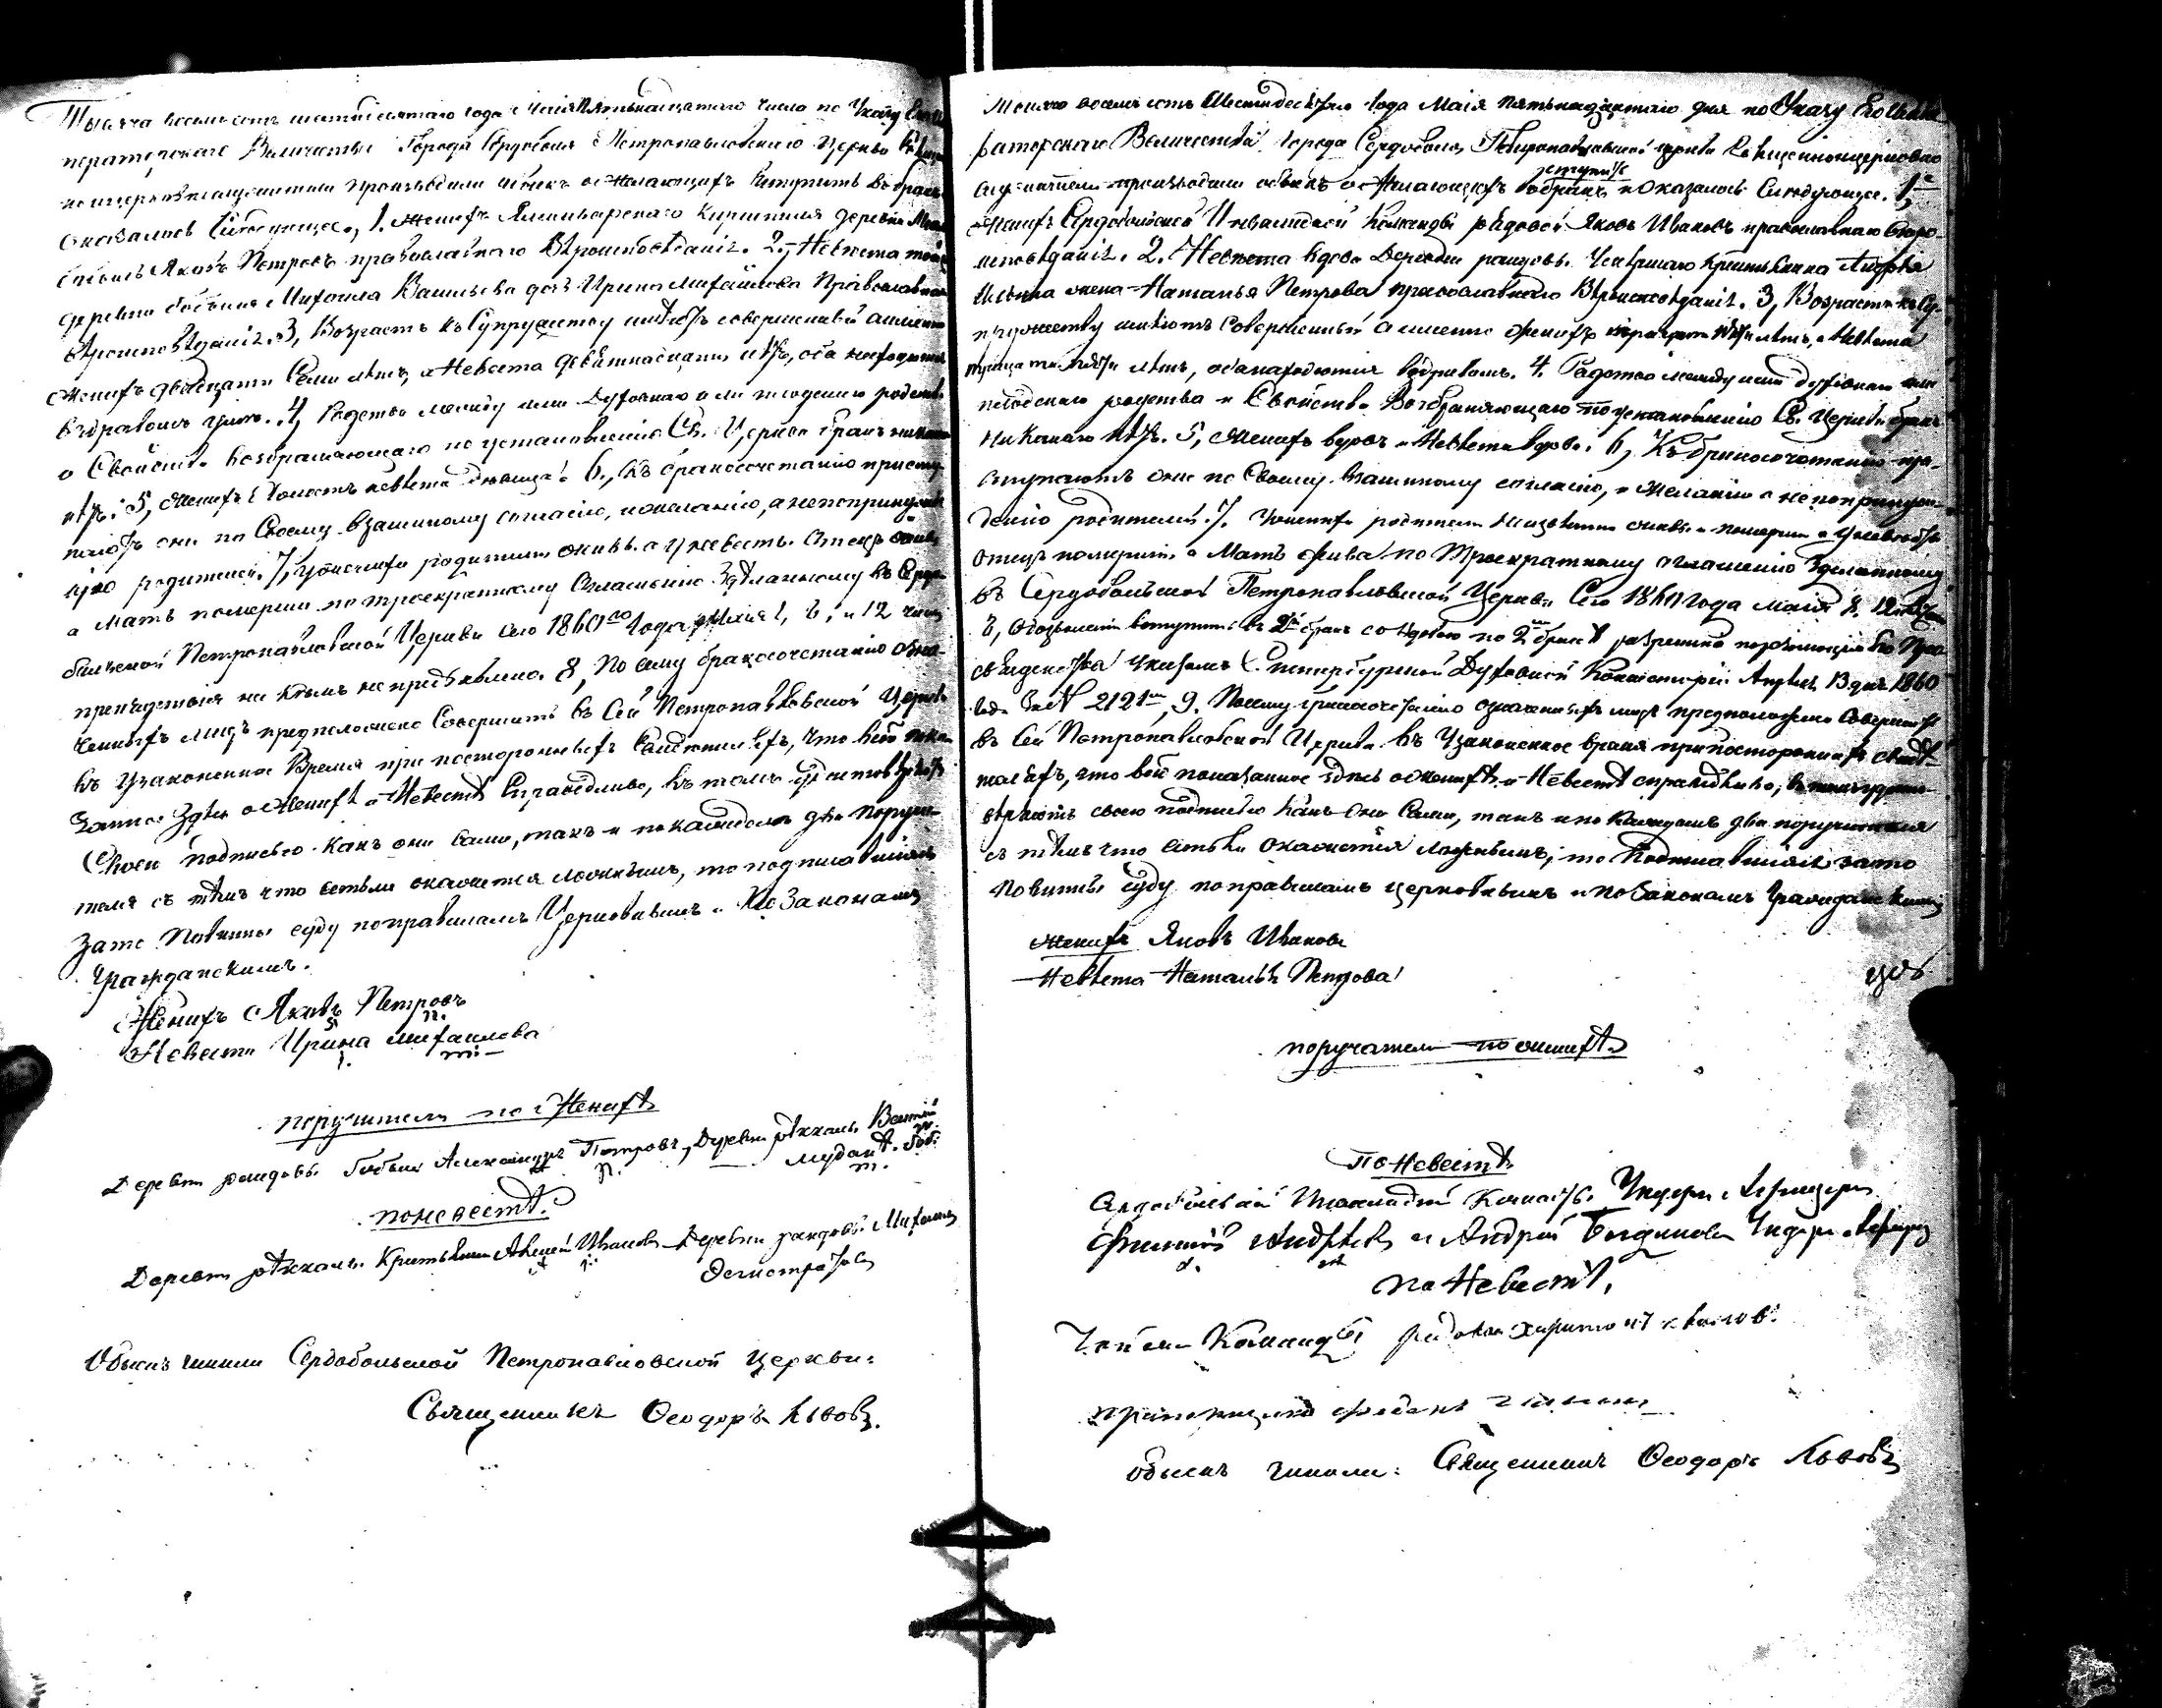 Тысяча восемьсотъ шестьдесятаго года Маія пятьнадцатаго числа по Указу Его
ператорскаго Величества Города Сердоболя Петропавловскою церковью
произведенъ обыскъ о желающихъ вступить въ бракъ
оказалось слѣдующее, 1. Женихъ Импиларскаго Кирхшпиля деревни
Яковъ Петровъ православнаго вѣроисповѣданія. 2, Невѣста той
деревни бобыля Михаила Васильева дочь Ирина Михайлова Православнаго
вѣроисповѣданія. 3, Возрастъ къ супружеству имѣютъ совершенный а именно
Женихъ двадцати семи лѣтъ, а Невѣста девятнадцати лѣтъ, оба находятся
въ здравомъ умѣ. 4, Родства между ими духовнаго или плотскаго родства
и Свойства возбраняющаго по установленію Св. Церкви бракъ никакого
нѣтъ. 5, Женихъ холостъ невѣста дѣвица. 6, Къ бракосочетанію присту-
паютъ они по Своему взаимному согласію, и желанію, а не по принужде-
нію родителей. 7, У жениха родители живы а у невѣсты Отецъ
а мать померши по троекратному оглашенію здѣланному въ Сердо-
больской Петропавловской Церкви сего 1860го года Маія 1, 8, и 12 чиселъ
препядствія ни кѣмъ не предъявлено. 8, По сему бракосочетаніе озна-
ченныхъ лицъ предположено Совершить въ Сей Петропавловской Церкви
въ узаконенное Время при постороннихъ Свидѣтеляхъ, Что всё пока-
занное здѣсь о Женихѣ и Невѣстѣ Справедливо, въ томъ удостовѣряютъ
Своею подписью какъ они сами, такъ и по каждомъ два поручи-
теля съ тѣмъ что естьли окажется ложнымъ, то подписавшіеся
за то Повинны суду по правиламъ Церковнымъ и По Законамъ
Гражданскимъ.
Женихъ Яковъ Петровъ
Невѣста Ирина Михайлова
поручители по Женихѣ
Деревни рандовы бобыль Александръ Петровъ, Деревни
по невѣстѣ.
Деревни Крестьянинъ Алексѣй Ивановъ Деревни рандовы Михаилъ
Обыскъ чинили Сердобольской Петропавловской церкви:
Священникъ Ѳеодоръ Львовъ.
Тысяча восемьсотъ Шестидесятаго года Маія пятьнадцатаго дня по Указу Его Импе-
раторскаго Величества Города Сердоболя Петропавловской церкви Священноцерковно
служители производили обыскъ о желающихъ вступить въ бракъ и оказалось Слѣдующее. 1,
Женихъ Сердобольской Инвалидной Команды рядовой Яковъ Ивановъ православнаго вѣро-
исповѣданія. 2. Невѣста вдова деревни рандовы Крестьянина Андрея
жена Наталья Петрова православнаго вѣроисповѣданія. 3, Возрастъ къ Су-
пружеству имѣютъ Совершенный а именно женихъ лѣтъ, а Невѣста
лѣтъ, оба находятся въ здравомъ. 4. Родства между ими духовнаго или
плотскаго родства и Свойства Возбраняющаго по установленію Св. Церкви бракъ
никакого нѣтъ. 5, Женихъ вдовъ и Невѣста вдова. 6, Къ бракосочетанію при-
ступаютъ они по Своему взаимному согласію, и желанію а не по принуж-
денію родителей. 7. У жениха родители неизвѣстно живы и померши а у невѣсты
отецъ померши а Мать жива по Троекратному оглашенію Здѣланному
въ Сердобольской Петропавловской Церкви Сего 1860 года Маія
8, О дозволеніи вступить въ 2й бракъ со вдовою по 2мъ бракѣ
Указомъ С. Петербургской Духовной Консисторіи Апрѣля 13 дня 1860
года за N 2121мъ, 9. По сему бракосочетаніе означенныхъ лицъ предположено Совершить
въ Сей Петропавловской Церкви въ Узаконенное время при постороннихъ свидѣ-
теляхъ, что всё показанное здѣсь о женихѣ и Невѣстѣ справедливо, въ томъ удосто-
вѣряютъ своею подписью какъ Они Сами, такъ и по каждомъ два поручителя
съ тѣмъ что естьли окажется ложнымъ, то Подписавшіеся за то
повинны суду по правиламъ церковнымъ и по Законамъ Гражданскимъ
Женихъ Яковъ Ивановъ
Невѣста Наталья Петрова
поручители по женихѣ
По Невѣстѣ
Андреевъ и Андрей Богдановъ
По Невѣстѣ,
Команды рядовой
обыскъ чинили: Священникъ Ѳеодоръ Львовъ